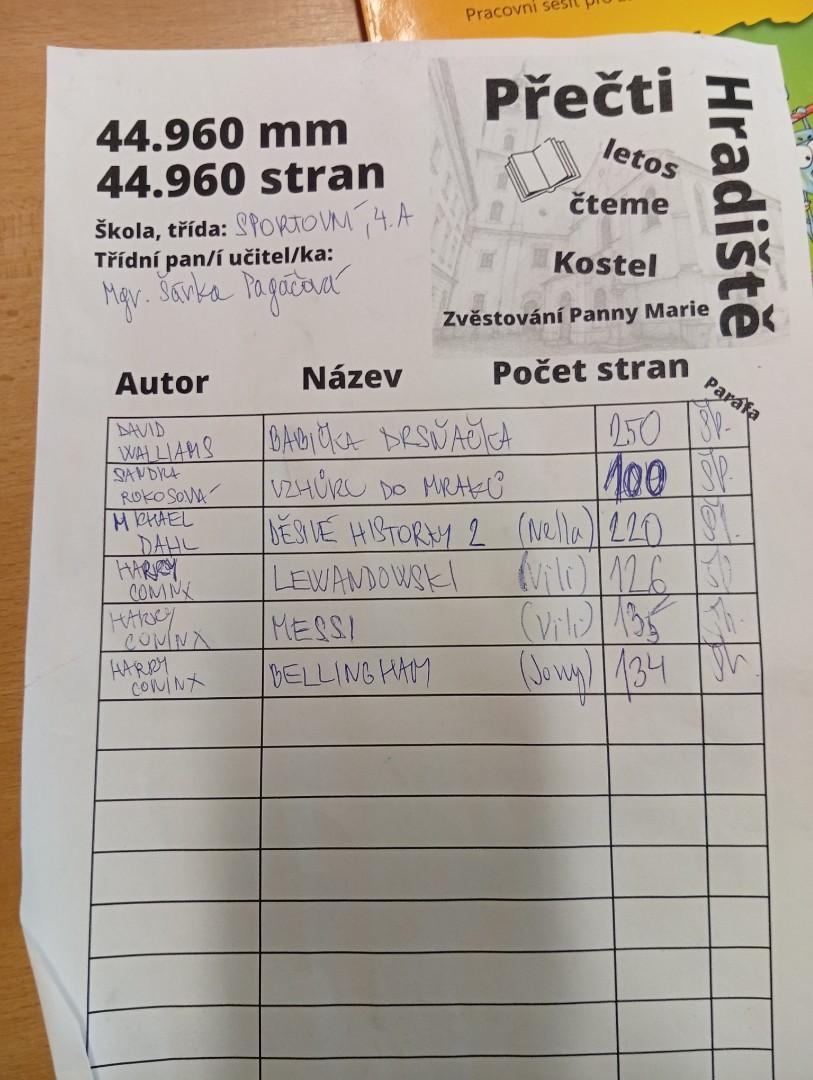 Pracovní sešit pro
44.960 mm
44.960 stran
Škola, třída: SPORTOVNÍ, 4.A
Třídní pan/í učitel/ka:
Mgr. Šárka Pagáčová
Přečti
Hradiště
letos
čteme
Kostel
Zvěstování Panny Marie
Autor Název Počet stran Parafa
DAVID
WALLIAMS BABIČKA DRSŇAČKA 250 ŠP.
SANDRA
ROKOSOVÁ VZHŮRU DO MRAKŮ 100 ŠP.
MICHAEL
DAHL DĚSIVÉ HISTORKY 2 (Nella) 220
HARRY
CONINX LEWANDOWSKI (Vili) 126
HARRY
CONINX MESSI (Vili) 135
HARRY
CONINX BELLINGHAM (Jony) 134